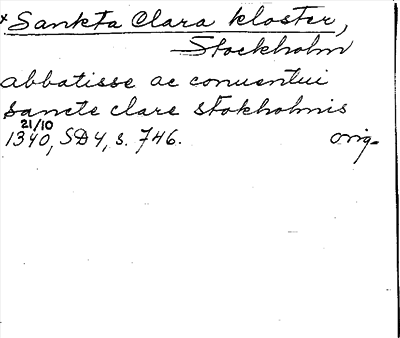 * Sankta Clara kloster,
Stockholm
abbatisse ac conuentui
sancte clare stokholmis
21/10
1340, SD 4, s. 746. orig.